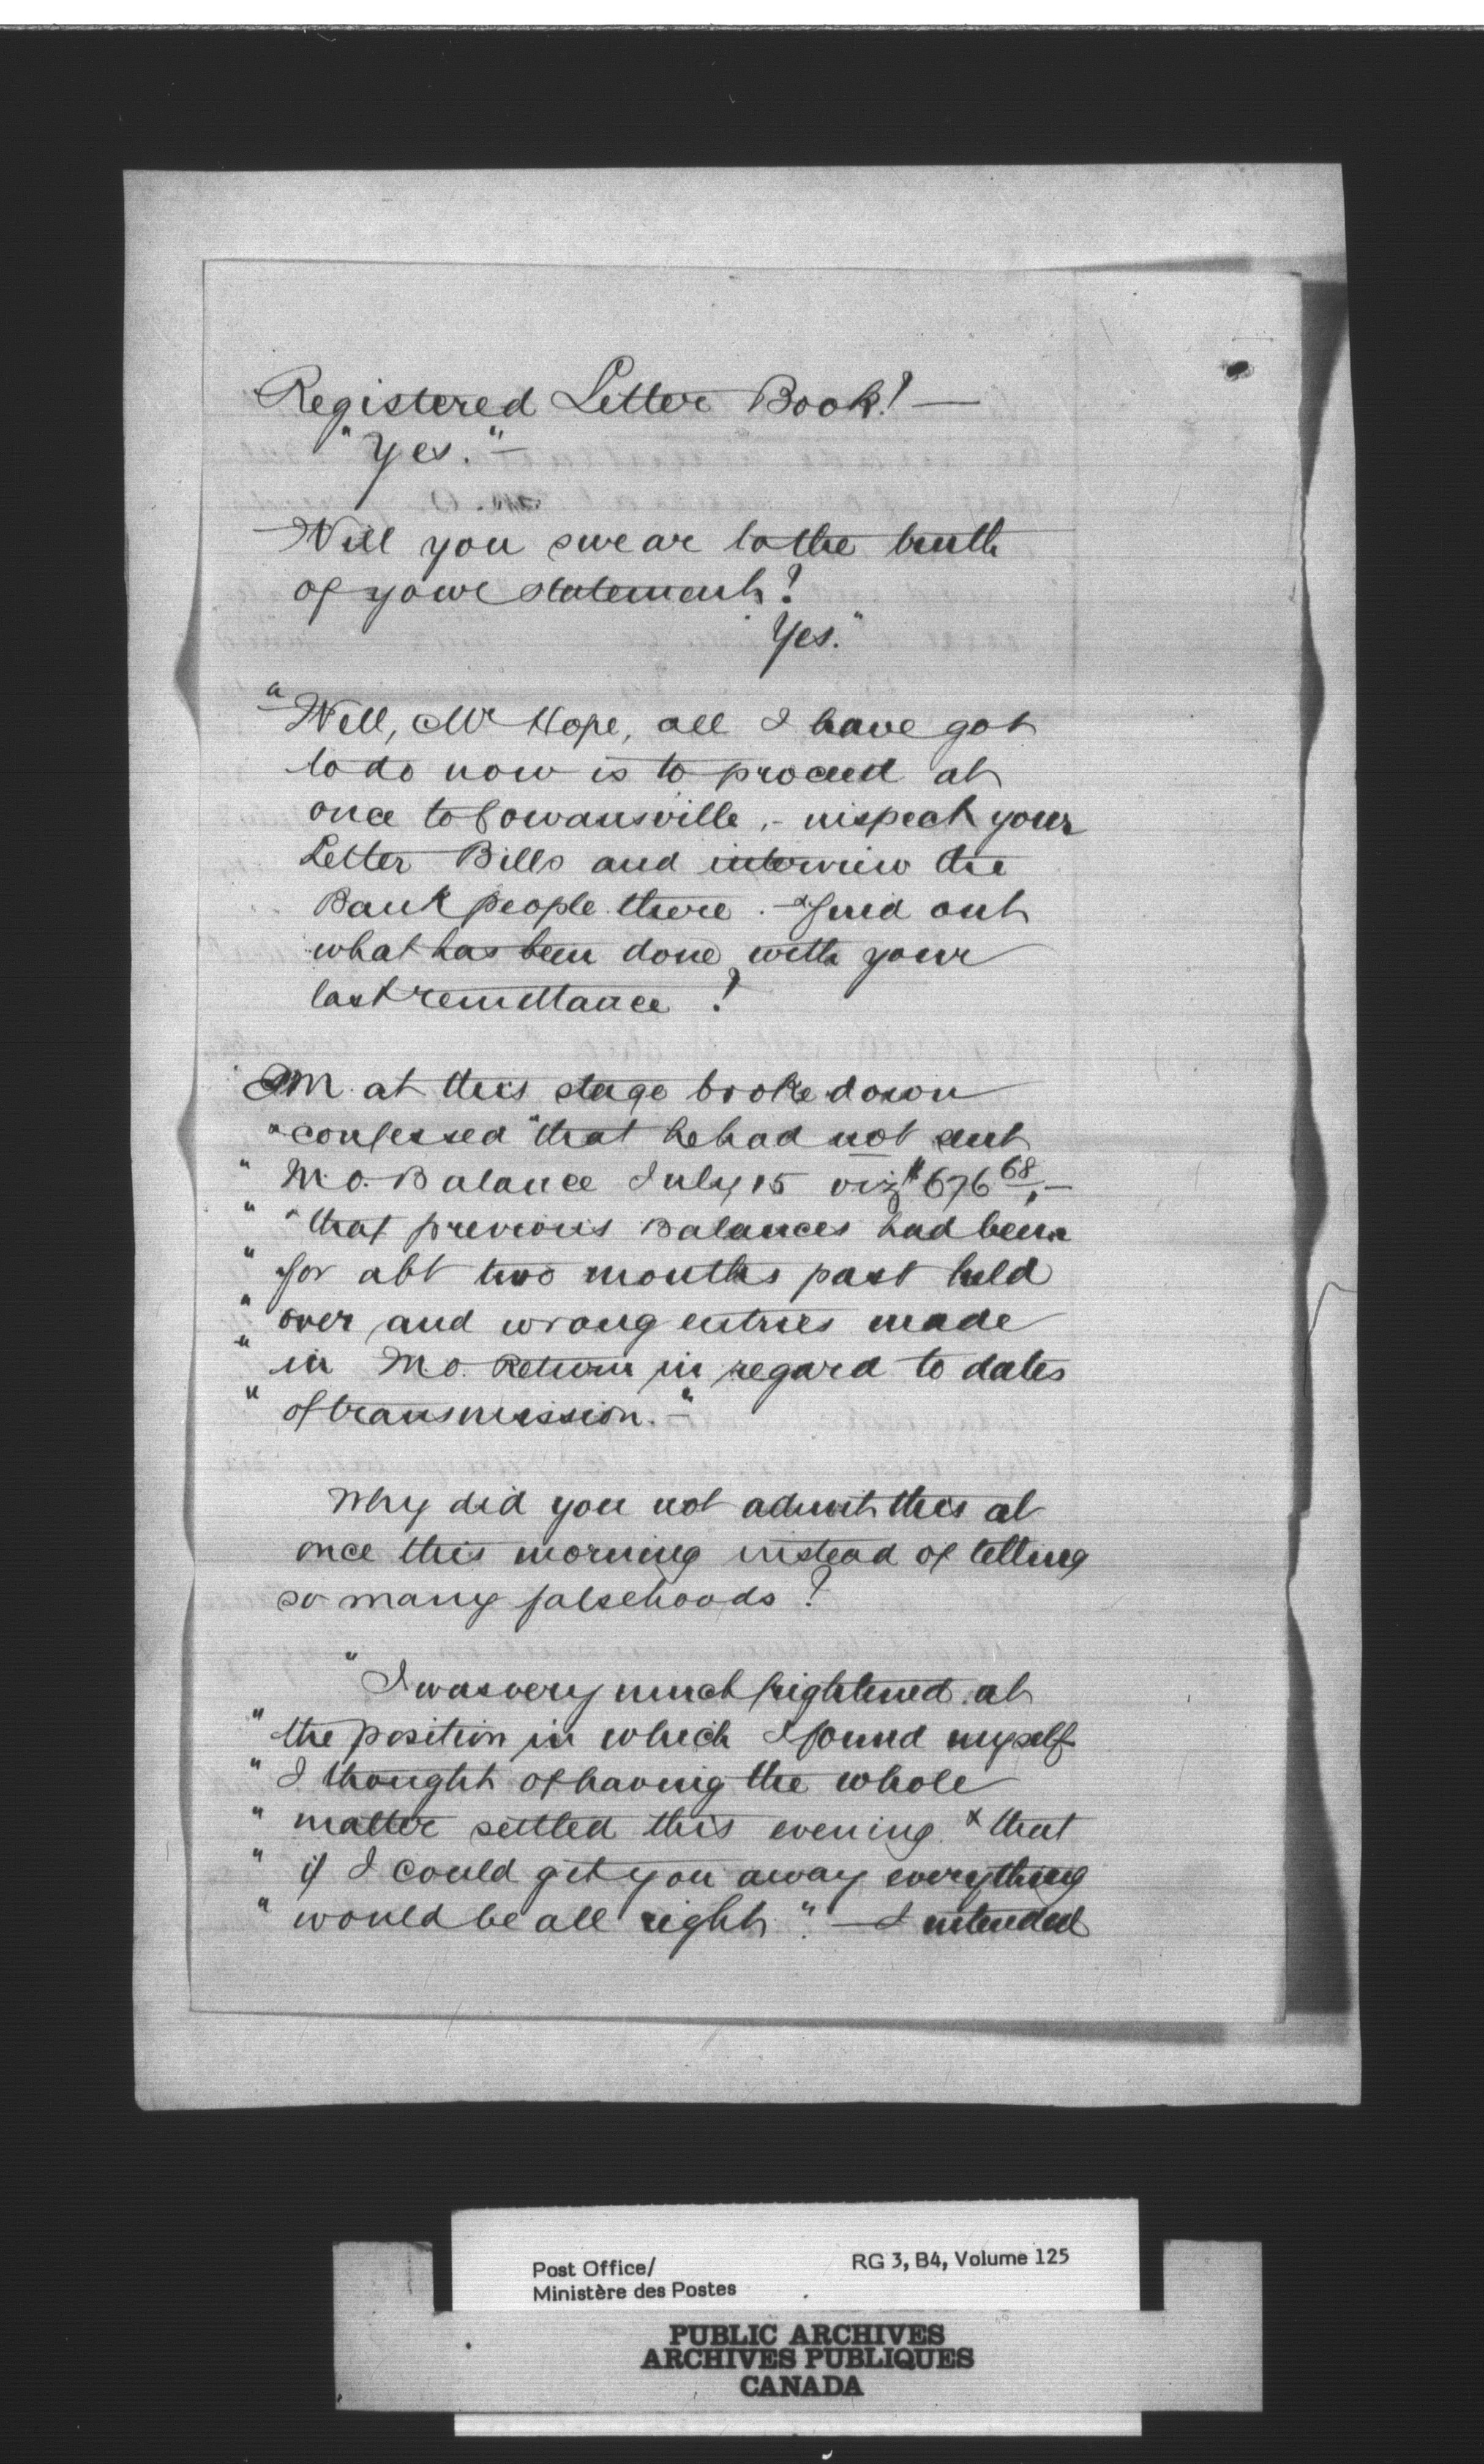 Registered Letter Book? —
"Yes."—
Will you swear to the truth
of your statement?
"Yes."
"Well, Mr Hope, all I have got
to do now is to proceed at
once to Cowansville, - inspect your
Letter Bills and interview the
Bank people there. - & find out
what has been done with your
last remittance?
PM. at this stage broke down
& confessed "that he had not sent
" M.O. Balance July 15 viz $676 68, —
" & that previous Balances had been
" for abt two months past held
" over and wrong entries made
" in M.O. Return in regard to dates
" of transmission. —"
Why did you not admit this at
once this morning instead of telling
so many falsehoods?
"I was very much frightened at
" the position in which I found myself
" I thought of having the whole
" matter settled this evening & that
" if I could get you away everything
" would be all right". — I intended
Post Office/
Ministère des Postes
RG 3, B4, Volume 125
PUBLIC ARCHIVES
ARCHIVES PUBLIQUES
CANADA